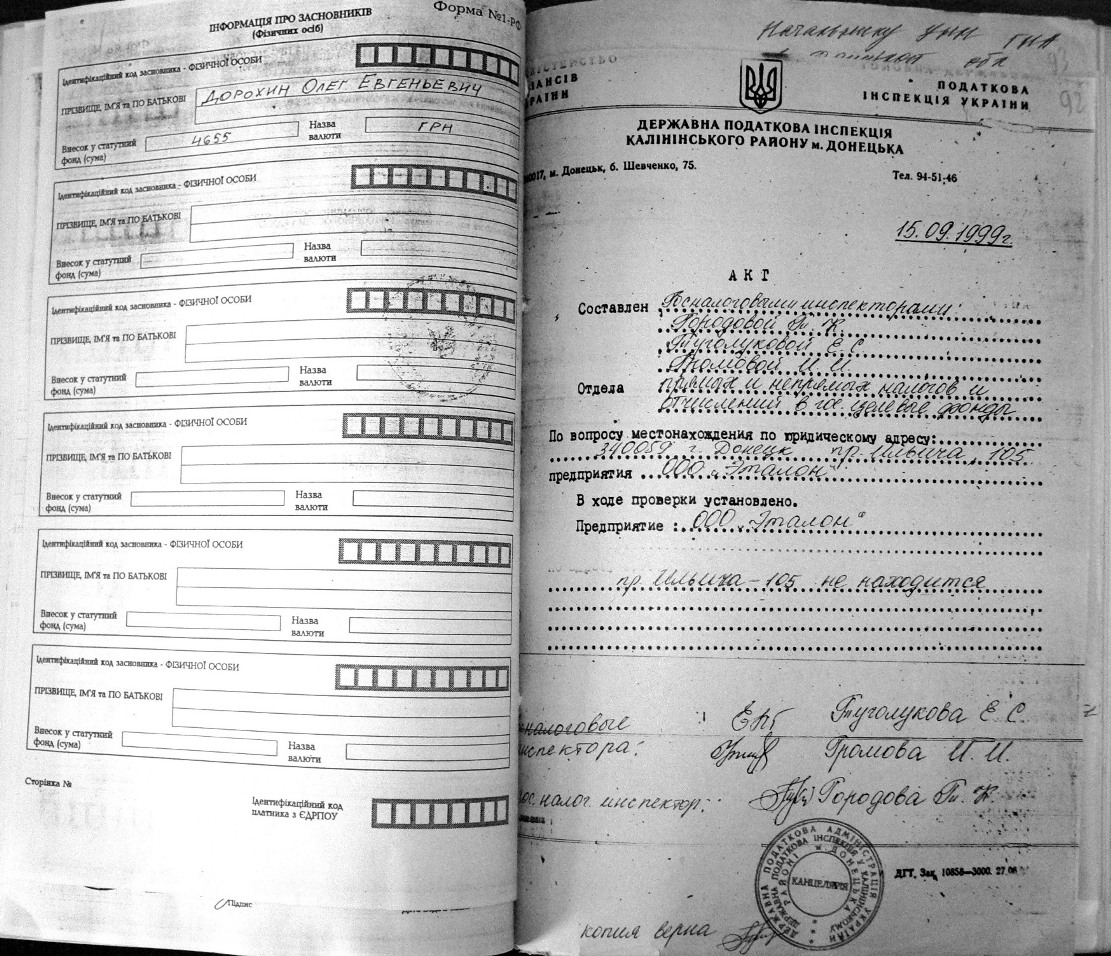 Форма №1-РФ
ІНФОРМАЦІЯ ПРО ЗАСНОВНИКІВ
(Фізичних осіб)
Ідентифікаційний код засновника - ФІЗИЧНОЇ ОСОБИ
ПРІЗВИЩЕ, ІМ'Я та ПО БАТЬКОВІ
ДОРОХИН ОЛЕГ ЕВГЕНЬЕВИЧ
Внесок у статутний фонд (сума) 4655 Назва валюти ГРН
Ідентифікаційний код засновника - ФІЗИЧНОЇ ОСОБИ
ПРІЗВИЩЕ, ІМ'Я та ПО БАТЬКОВІ
Внесок у статутний фонд (сума) Назва валюти
Ідентифікаційний код засновника - ФІЗИЧНОЇ ОСОБИ
ПРІЗВИЩЕ, ІМ'Я та ПО БАТЬКОВІ
Внесок у статутний фонд (сума) Назва валюти
Ідентифікаційний код засновника - ФІЗИЧНОЇ ОСОБИ
ПРІЗВИЩЕ, ІМ'Я та ПО БАТЬКОВІ
Внесок у статутний фонд (сума) Назва валюти
Ідентифікаційний код засновника - ФІЗИЧНОЇ ОСОБИ
ПРІЗВИЩЕ, ІМ'Я та ПО БАТЬКОВІ
Внесок у статутний фонд (сума) Назва валюти
Ідентифікаційний код засновника - ФІЗИЧНОЇ ОСОБИ
ПРІЗВИЩЕ, ІМ'Я та ПО БАТЬКОВІ
Внесок у статутний фонд (сума) Назва валюти
Сторінка №
Ідентифікаційний код
платника з ЄДРПОУ
Підпис
Начальнику
обл
92
ПОДАТКОВА
ІНСПЕКЦІЯ УКРАЇНИ
ДЕРЖАВНА ПОДАТКОВА ІНСПЕКЦІЯ
КАЛІНІНСЬКОГО РАЙОНУ м. ДОНЕЦЬКА
м. Донецьк, б. Шевченко, 75.
Тел. 94-51-46
15.09.1999г
АКТ
Составлен Госналоговами инспекторами:
Городовой Т. К.
Туголуковой Е С
Громовой И. И.
Отдела прямых и непрямых налогов и
отчислений в гос целевые фонды
По вопросу местонахождения по юридическому адресу:
340059 г. Донецк пр. Ильича, 105
предприятия ООО „Эталон"
В ходе проверки установлено.
Предприятие: ООО „Эталон"
пр. Ильича-105 не находится
Туголукова Е С.
Громова И. И.
налог. инспектор: Городова К.
КАНЦЕЛЯРІЯ
ДГТ. Зак. 10858—3000. 27.08
копия верна